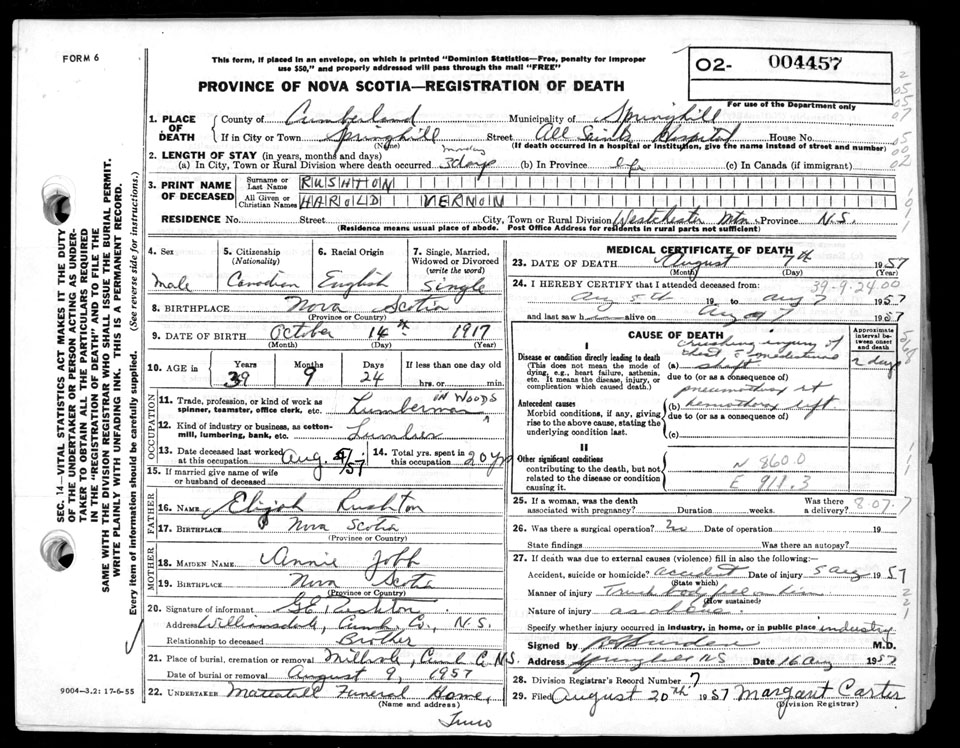 FORM 6
This form, if placed in an envelope, on which is printed "Dominion Statistics—Free, penalty for improper
use $50," and properly addressed will pass through the mail "FREE"
O2- 004457
PROVINCE OF NOVA SCOTIA—REGISTRATION OF DEATH
For use of the Department only
1. PLACE OF DEATH County of Cumberland Municipality of Springhill
If in City or Town Springhill Street All Saints Hospital House No.
(Name) (If death occurred in a hospital or institution, give the name instead of street and number)
2. LENGTH OF STAY (in years, months and days)
(a) In City, Town or Rural Division where death occurred 3 days (b) In Province life (c) In Canada (if immigrant)
3. PRINT NAME OF DECEASED Surname or Last Name RUSHTON
All Given or Christian Names HAROLD VERNON
RESIDENCE No. Street City, Town or Rural Division Westchester Mtn Province N.S.
(Residence means usual place of abode. Post Office Address for residents in rural parts not sufficient)
4. Sex Male
5. Citizenship (Nationality) Canadian
6. Racial Origin English
7. Single, Married, Widowed or Divorced (write the word) Single
8. BIRTHPLACE Nova Scotia
(Province or Country)
9. DATE OF BIRTH October 14th 1917
(Month) (Day) (Year)
10. AGE in Years Months Days If less than one day old
39 9 24 hrs. or min.
OCCUPATION
11. Trade, profession, or kind of work as spinner, teamster, office clerk, etc. Lumberman IN WOODS
12. Kind of industry or business, as cotton-mill, lumbering, bank, etc. Lumber
13. Date deceased last worked at this occupation Aug. /57
14. Total yrs. spent in this occupation 20 yrs
15. If married give name of wife or husband of deceased
FATHER
16. NAME Elijah Rushton
17. BIRTHPLACE Nova Scotia
(Province or Country)
MOTHER
18. MAIDEN NAME Annie
19. BIRTHPLACE Nova Scotia
(Province or Country)
20. Signature of informant Rushton
Address Williamsdale, Cumb. Co., N.S.
Relationship to deceased Brother
21. Place of burial, cremation or removal Cumb Co. N.S.
Date of burial or removal August 9, 1957
22. UNDERTAKER Mattatall Funeral Home,
(Name and address)
Truro
9004-3.2: 17-6-55
MEDICAL CERTIFICATE OF DEATH
23. DATE OF DEATH August 7th 1957
(Month) (Day) (Year)
39-9-24 00
24. I HEREBY CERTIFY that I attended deceased from:
Aug 5th 19 to Aug 7 1957
and last saw him alive on Aug 7 1957
CAUSE OF DEATH
Approximate interval between onset and death
I
Disease or condition directly leading to death
(This does not mean the mode of dying, e.g., heart failure, asthenia, etc. It means the disease, injury, or complication which caused death.)
(a) Crushing injury of chest
2 days
due to (or as a consequence of)
pneumothorax rt
Antecedent causes
Morbid conditions, if any, giving rise to the above cause, stating the underlying condition last.
(b) hemothorax left
due to (or as a consequence of)
(c)
II
Other significant conditions
contributing to the death, but not related to the disease or condition causing it.
N 860.0
E 911.3
25. If a woman, was the death associated with pregnancy? Duration weeks. Was there a delivery?
8-07-7
26. Was there a surgical operation? no Date of operation 19
State findings Was there an autopsy?
27. If death was due to external causes (violence) fill in also the following:—
Accident, suicide or homicide? accident Date of injury 5 aug 1957
(State which)
Manner of injury Truck body fell on him
(How sustained)
Nature of injury as above
Specify whether injury occurred in industry, in home, or in public place industry
Signed by M.D.
Address Springhill NS Date 16 aug 1957
28. Division Registrar's Record Number 7
29. Filed August 20th 1957 Margaret Carter
(Division Registrar)
SEC. 14—VITAL STATISTICS ACT MAKES IT THE DUTY
OF THE UNDERTAKER OR PERSON ACTING AS UNDER-
TAKER TO OBTAIN ALL THE PARTICULARS REQUIRED
IN THE "REGISTRATION OF DEATH" AND TO FILE THE
SAME WITH THE DIVISION REGISTRAR WHO SHALL ISSUE THE BURIAL PERMIT.
WRITE PLAINLY WITH UNFADING INK. THIS IS A PERMANENT RECORD.
Every item of information should be carefully supplied. (See reverse side for instructions.)